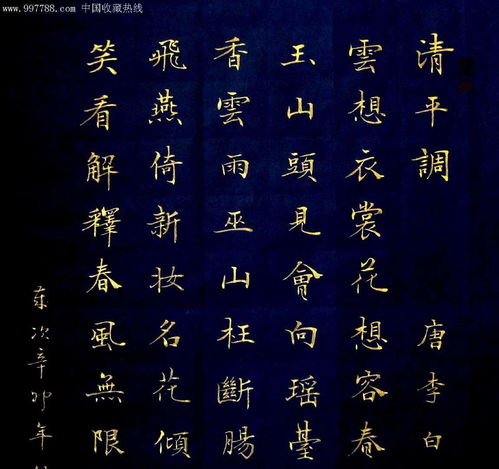 www.997788.com 中国收藏热线
清平調 唐李白
雲想衣裳花想容春
玉山頭見會向瑶臺
香雲雨巫山枉斷腸
飛燕倚新妆名花傾
笑看解釋春風無限
次辛卯年